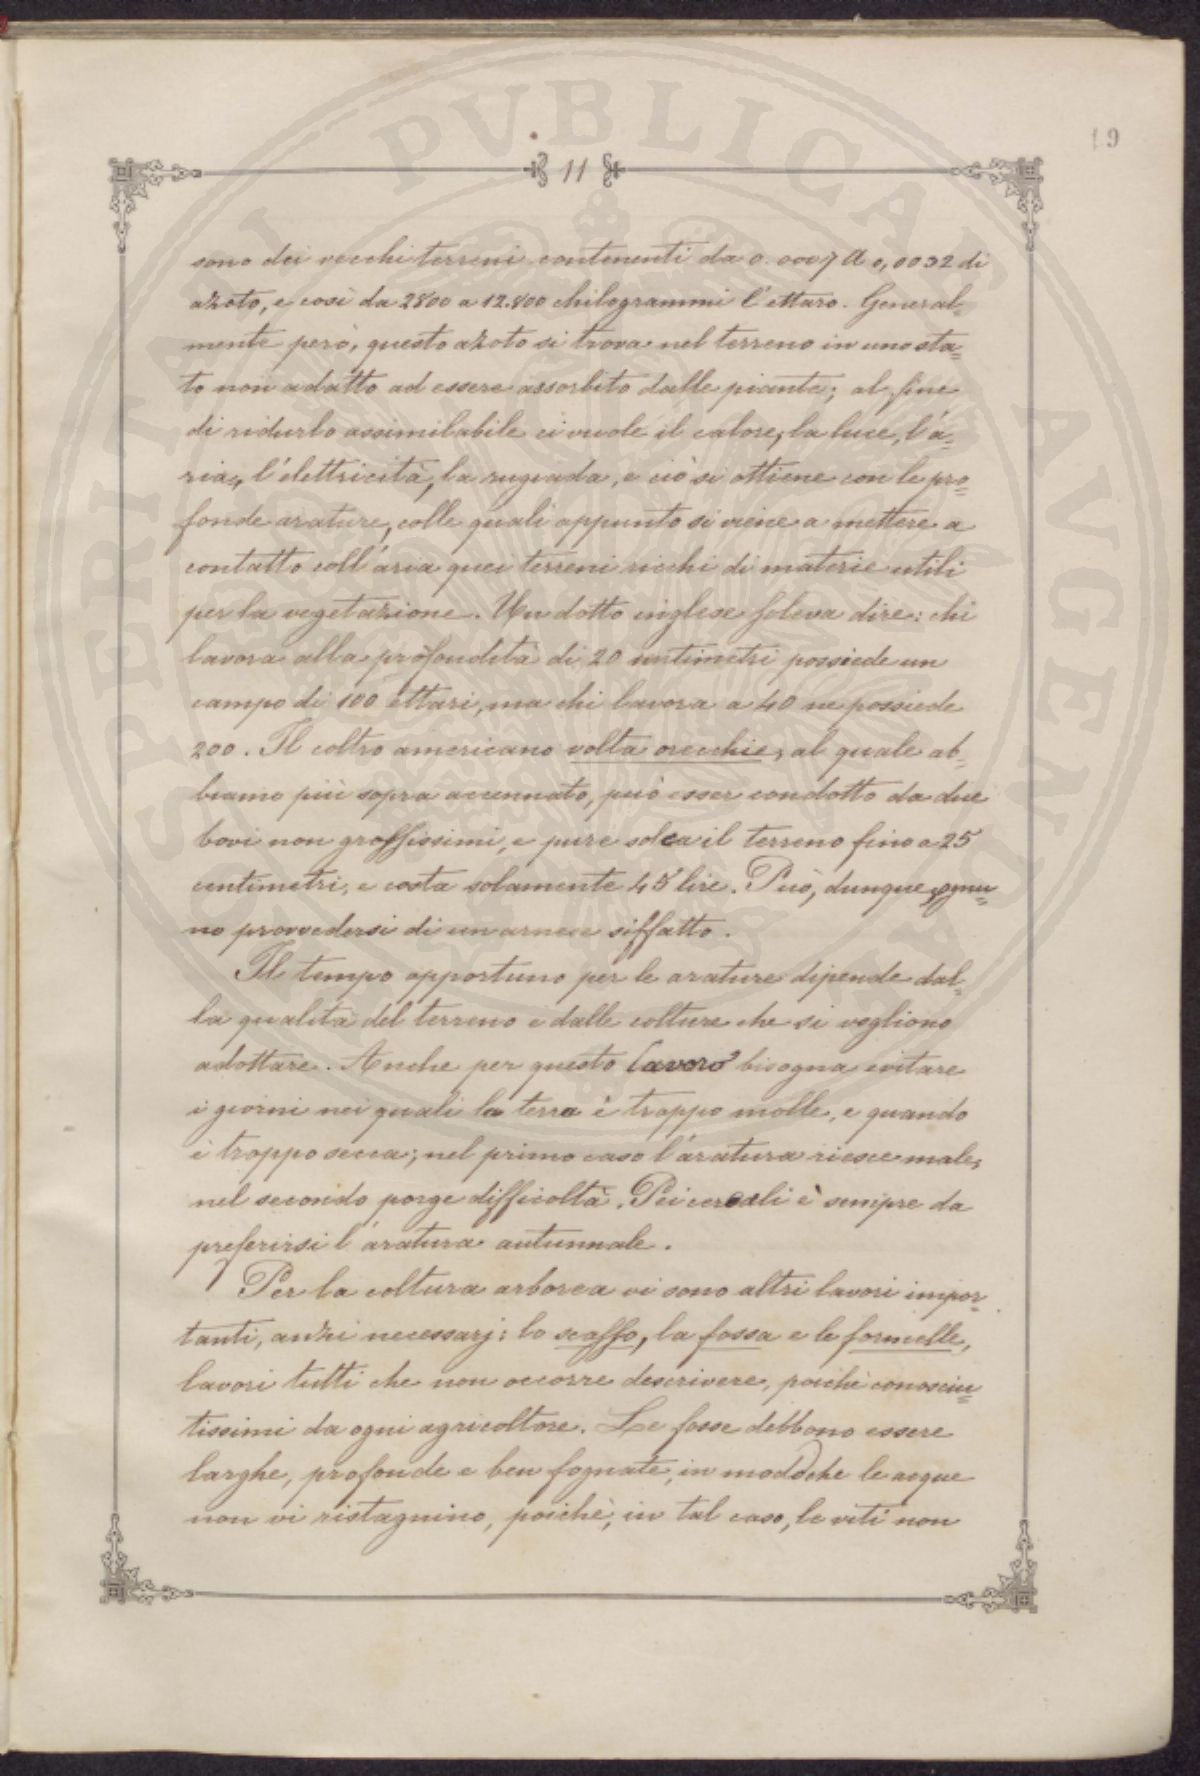 19
11
sono dei vecchi terreni contenenti da 0.0007 a 0,0032 di
azoto, e così da 2800 a 12.800 chilogrammi l'ettaro. General=
mente però, questo azoto si trova nel terreno in uno sta=
to non adatto ad essere assorbito dalle piante; al fine
di ridurlo assimilabile ci vuole il calore, la luce, l'a=
ria, l'elettricità, la rugiada, e ciò si ottiene con le pro=
fonde arature, colle quali appunto si viene a mettere a
contatto coll'aria quei terreni ricchi di materie utili
per la vegetazione. Un dotto inglese soleva dire: chi
lavora alla profondità di 20 centimetri possiede un
campo di 100 ettari, ma chi lavora a 40 ne possiede
200. Il coltro americano volta orecchie, al quale ab=
biamo più sopra accennato, può esser condotto da due
bovi non grossissimi, e pure solca il terreno fino a 25
centimetri, e costa solamente 45 lire. Può, dunque, ognu=
no provvedersi di un arnese siffatto.
Il tempo opportuno per le arature dipende dal=
la qualità del terreno e dalle colture che si vogliono
adottare. Anche per questo lavoro bisogna evitare
i giorni nei quali la terra è troppo molle, e quando
è troppo secca; nel primo caso l'aratura riesce male,
nel secondo porge difficoltà. Pei cereali è sempre da
preferirsi l'aratura autunnale.
Per la coltura arborea vi sono altri lavori impor=
tanti, anzi necessarj: lo scasso, la fossa e le formelle,
lavori tutti che non occorre descrivere, poichè conosciu=
tissimi da ogni agricoltore. Le fosse debbono essere
larghe, profonde e ben fognate, in modo che le acque
non vi ristagnino, poichè, in tal caso, le viti non
PVBLICAE
AVGENDAE